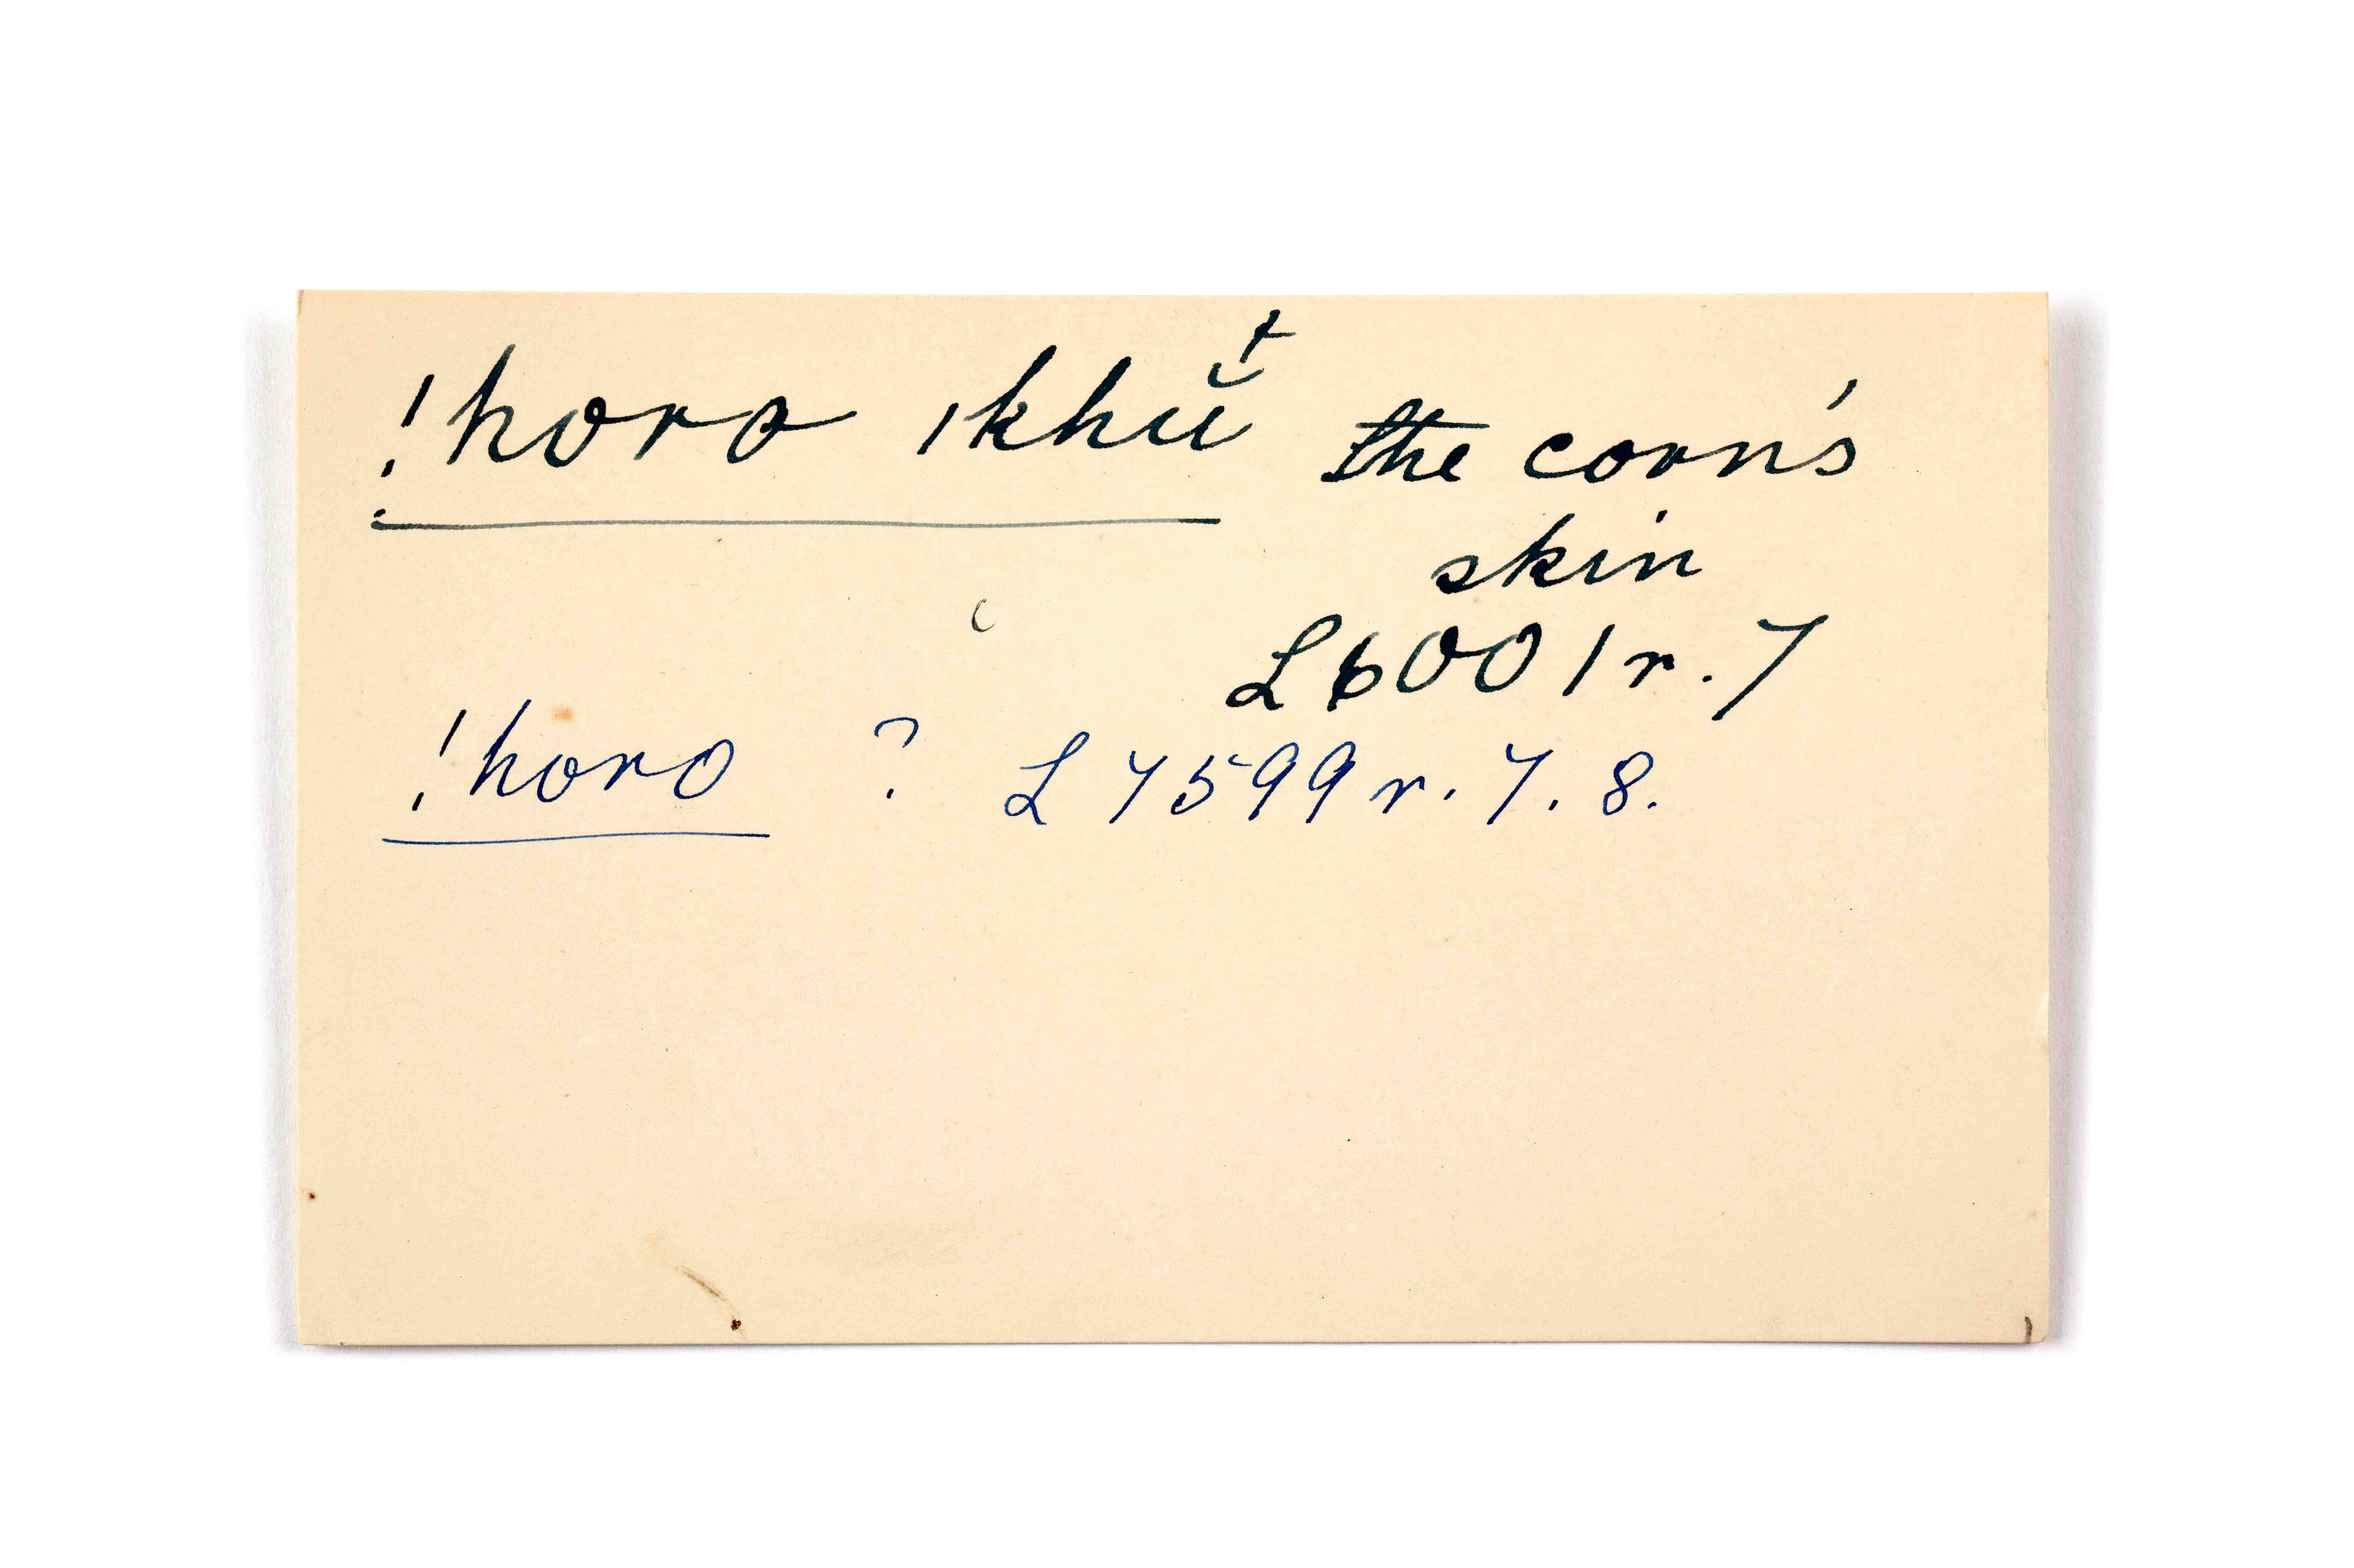 !horo ǀkhŭ⁺ the corn's
skin
L6001r.7
!horo ? L 7599 r. 7. 8.